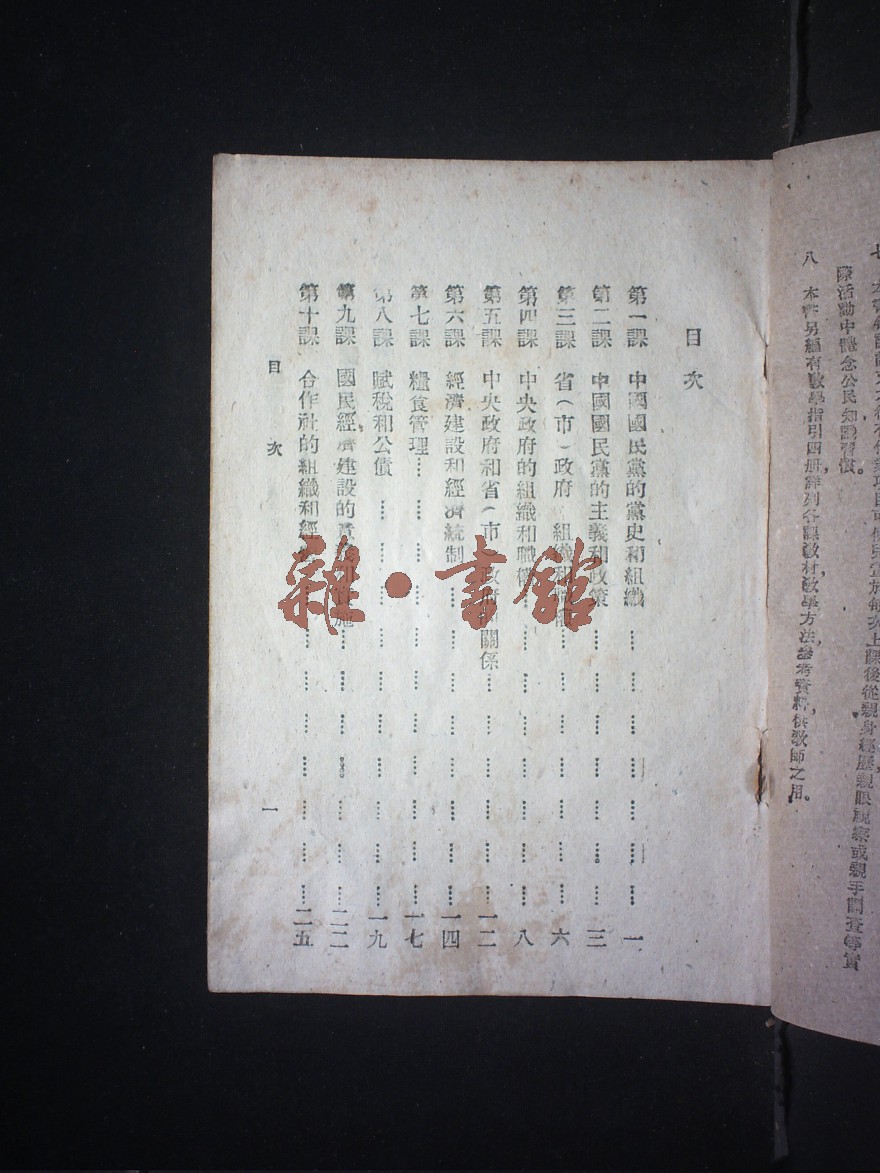 上課後從親身經歷親眼視察或親手調查等實
際活動中體念公民知識習慣。
八 本書另編有教學指引四册，詳列各課教材，教學方法，參考資料，供教師之用。
目次
第一課 中國國民黨的黨史和組織……一
第二課 中國國民黨的主義和政策……三
第三課 省（市）政府組織和職權……六
第四課 中央政府的組織和職權……八
第五課 中央政府和省（市）政府的關係……一二
第六課 經濟建設和經濟統制……一四
第七課 糧食管理……一七
第八課 賦稅和公債……一九
第九課 國民經濟建設的意義和實施……二二
第十課 合作社的組織和經……二五
目次
一
雜·書館